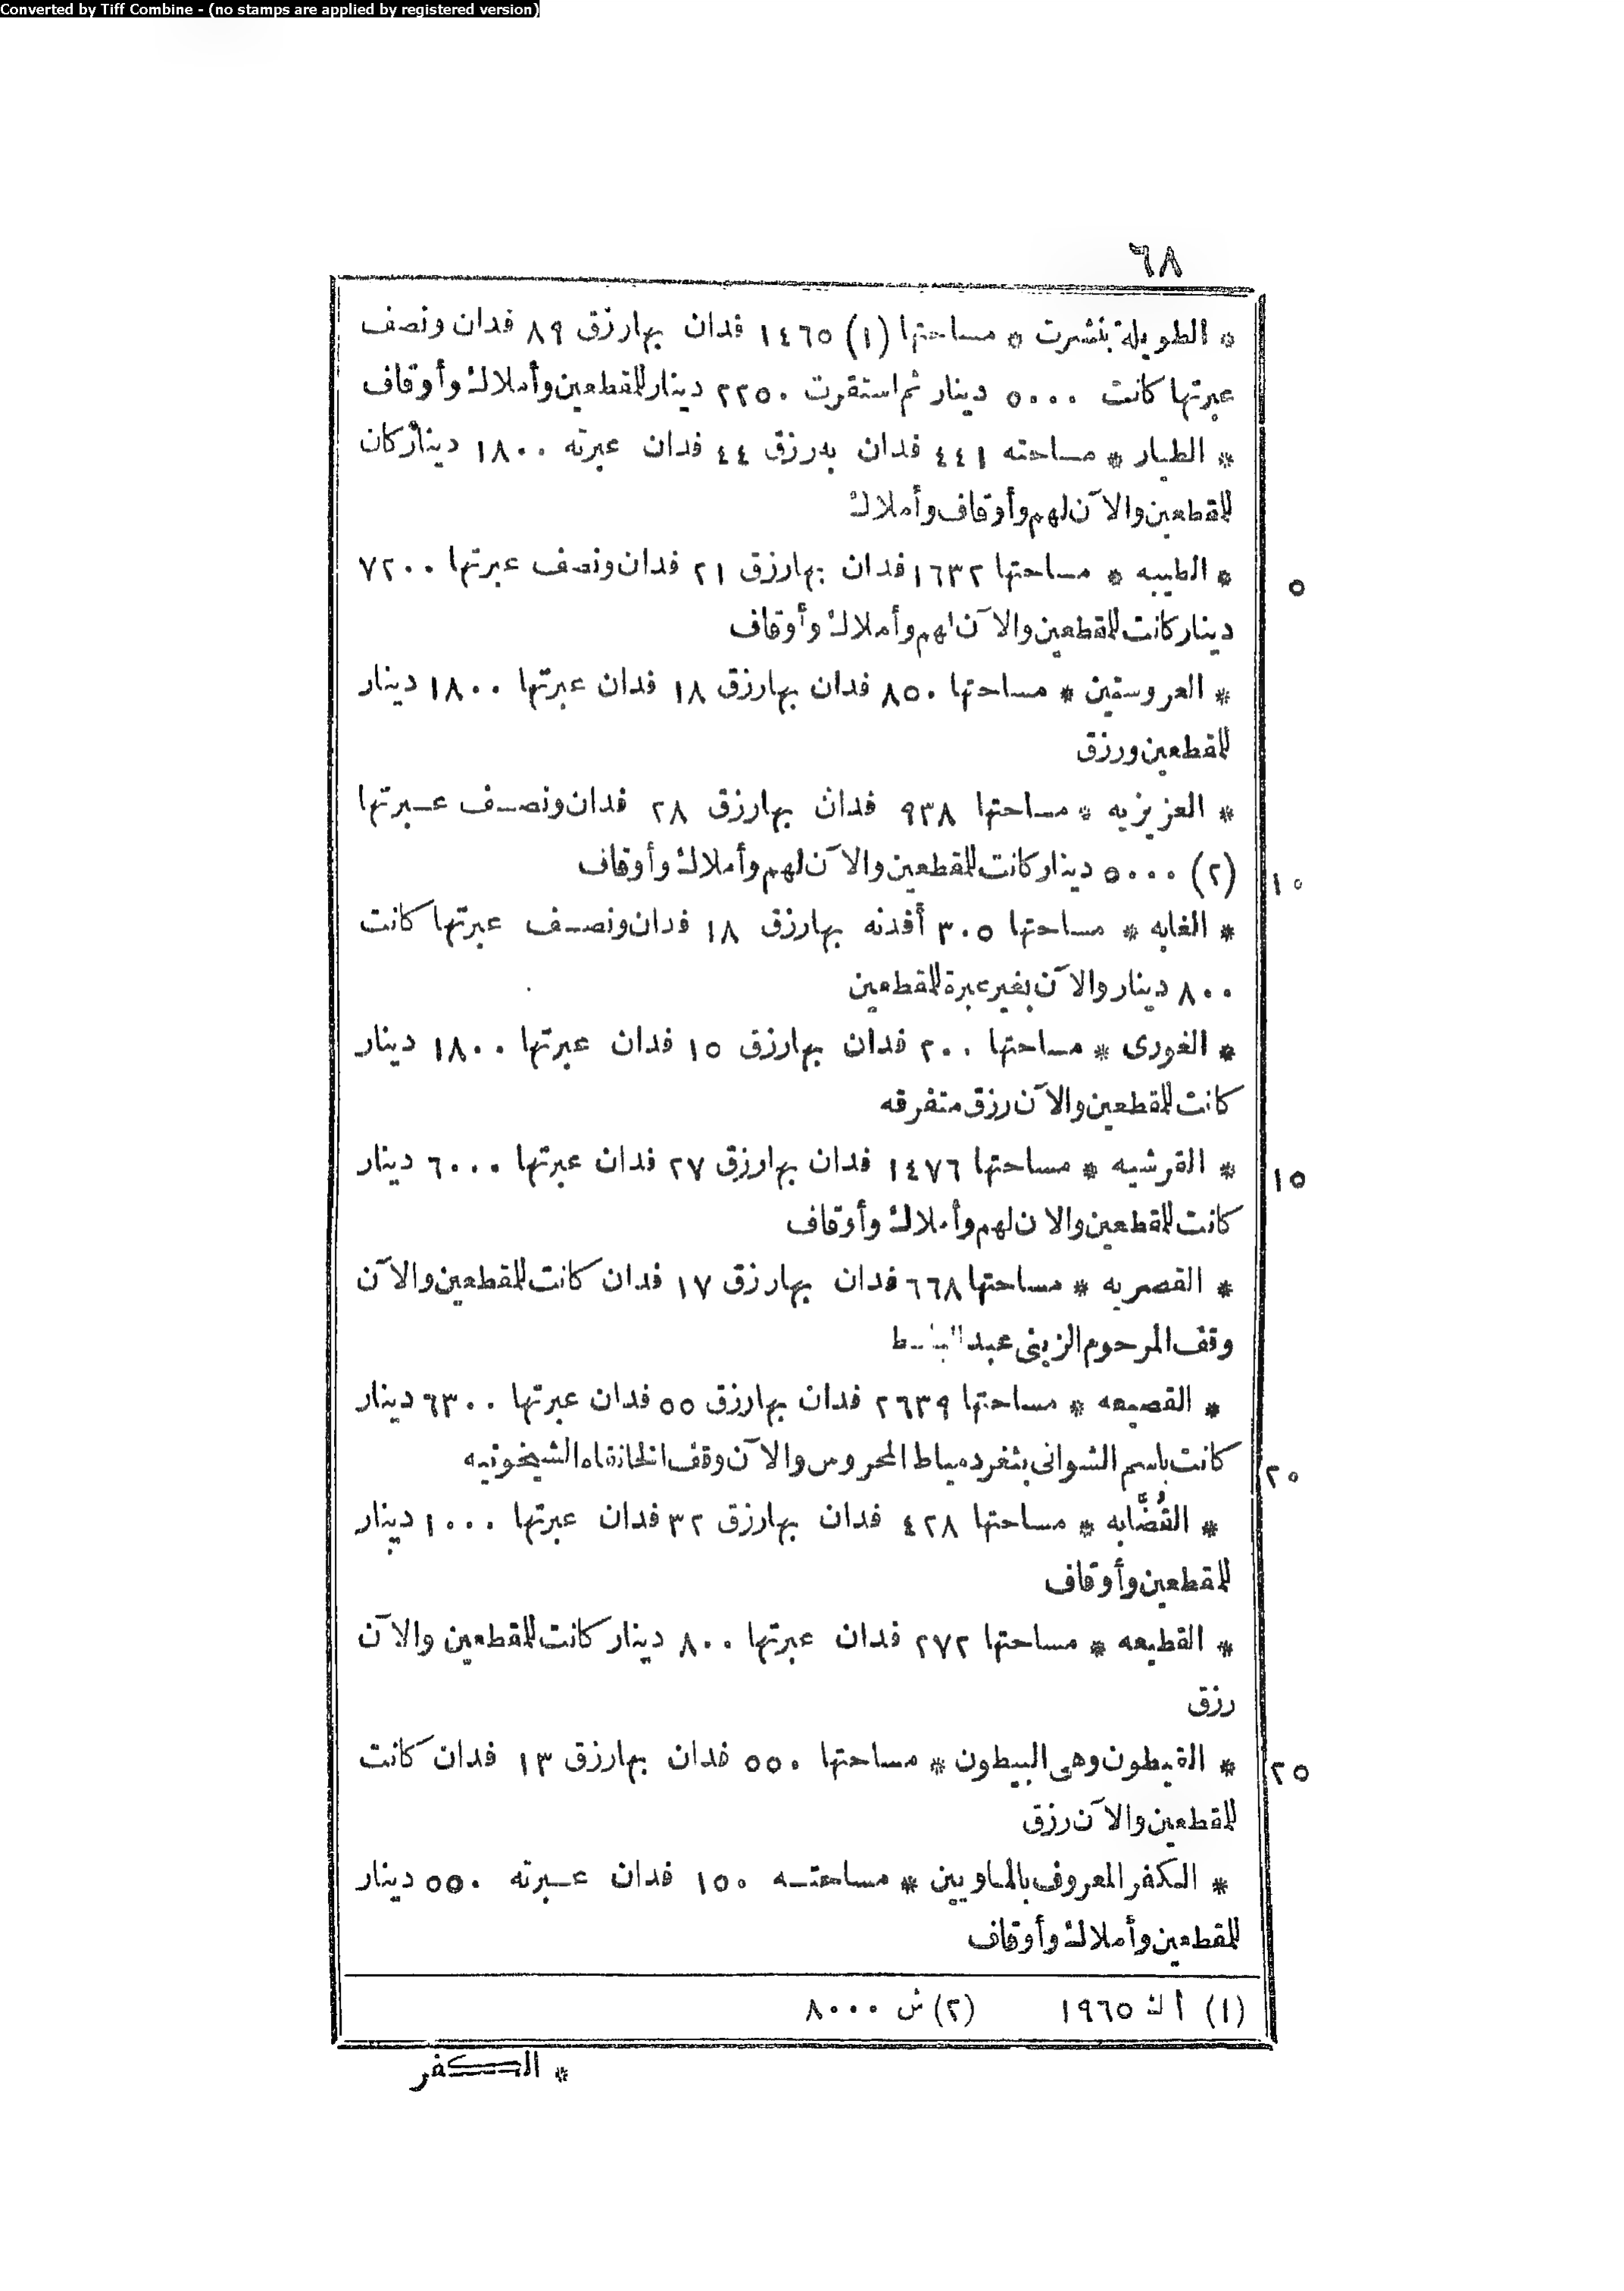 Converted by Tiff Combine - (no stamps are applied by registered version)
٦٨
* الطويلة بنشرت * مساحتها (١) ١٤٦٥ فدان بها رزق ٨٩ فدان ونصف
عبرتها كانت ٥٠٠٠ دينار ثم استقرت ٢٢٥٠ دينار للمقطعين وأملاك وأوقاف
* الطيار * مساحته ٤٤١ فدان به رزق ٤٤ فدان عبرته ١٨٠٠ دينار كان
للمقطعين والآن لهم وأوقاف وأملاك
* الطيبه * مساحتها ١٦٣٢ فدان بها رزق ٢١ فدان ونصف عبرتها ٧٢٠٠
٥
دينار كانت للمقطعين والآن لهم وأملاك وأوقاف
* العروستين * مساحتها ٨٥٠ فدان بها رزق ١٨ فدان عبرتها ١٨٠٠ دينار
للمقطعين ورزق
* العزيزيه * مساحتها ٩٣٨ فدان بها رزق ٢٨ فدان ونصف عبرتها
(٢) ٥٠٠٠ دينار كانت للمقطعين والآن لهم وأملاك وأوقاف
١٠
* الغابه * مساحتها ٣٠٥ أفدنه بها رزق ١٨ فدان ونصف عبرتها كانت
٨٠٠ دينار والآن بغير عبرة للمقطعين
* الغورى * مساحتها ٢٠٠ فدان بها رزق ١٥ فدان عبرتها ١٨٠٠ دينار
كانت للمقطعين والآن رزق متفرقه
* القرشيه * مساحتها ١٤٧٦ فدان بها رزق ٢٧ فدان عبرتها ٦٠٠٠ دينار
١٥
كانت للمقطعين والان لهم وأملاك وأوقاف
* القصريه * مساحتها ٦٦٨ فدان بها رزق ١٧ فدان كانت للمقطعين والآن
وقف المرحوم الزينى عبد الباسط
* القصيعه * مساحتها ٢٦٣٩ فدان بها رزق ٥٥ فدان عبرتها ٦٣٠٠ دينار
كانت باسم الشوانى بثغر دمياط المحروس والآن وقف الخانقاه الشيخونيه
٢٠
* القُضَّابه * مساحتها ٤٢٨ فدان بها رزق ٣٢ فدان عبرتها ١٠٠٠ دينار
للمقطعين وأوقاف
* القطيعه * مساحتها ٢٧٢ فدان عبرتها ٨٠٠ دينار كانت للمقطعين والآن
رزق
* القيطون وهى البيطون * مساحتها ٥٥٠ فدان بها رزق ١٣ فدان كانت
٢٥
للمقطعين والآن رزق
* الكفر المعروف بالماويين * مساحته ١٥٠ فدان عبرته ٥٥٠ دينار
للمقطعين وأملاك وأوقاف
(١) أ ك ١٩٦٥ (٢) ش ٨٠٠٠
* الكفر